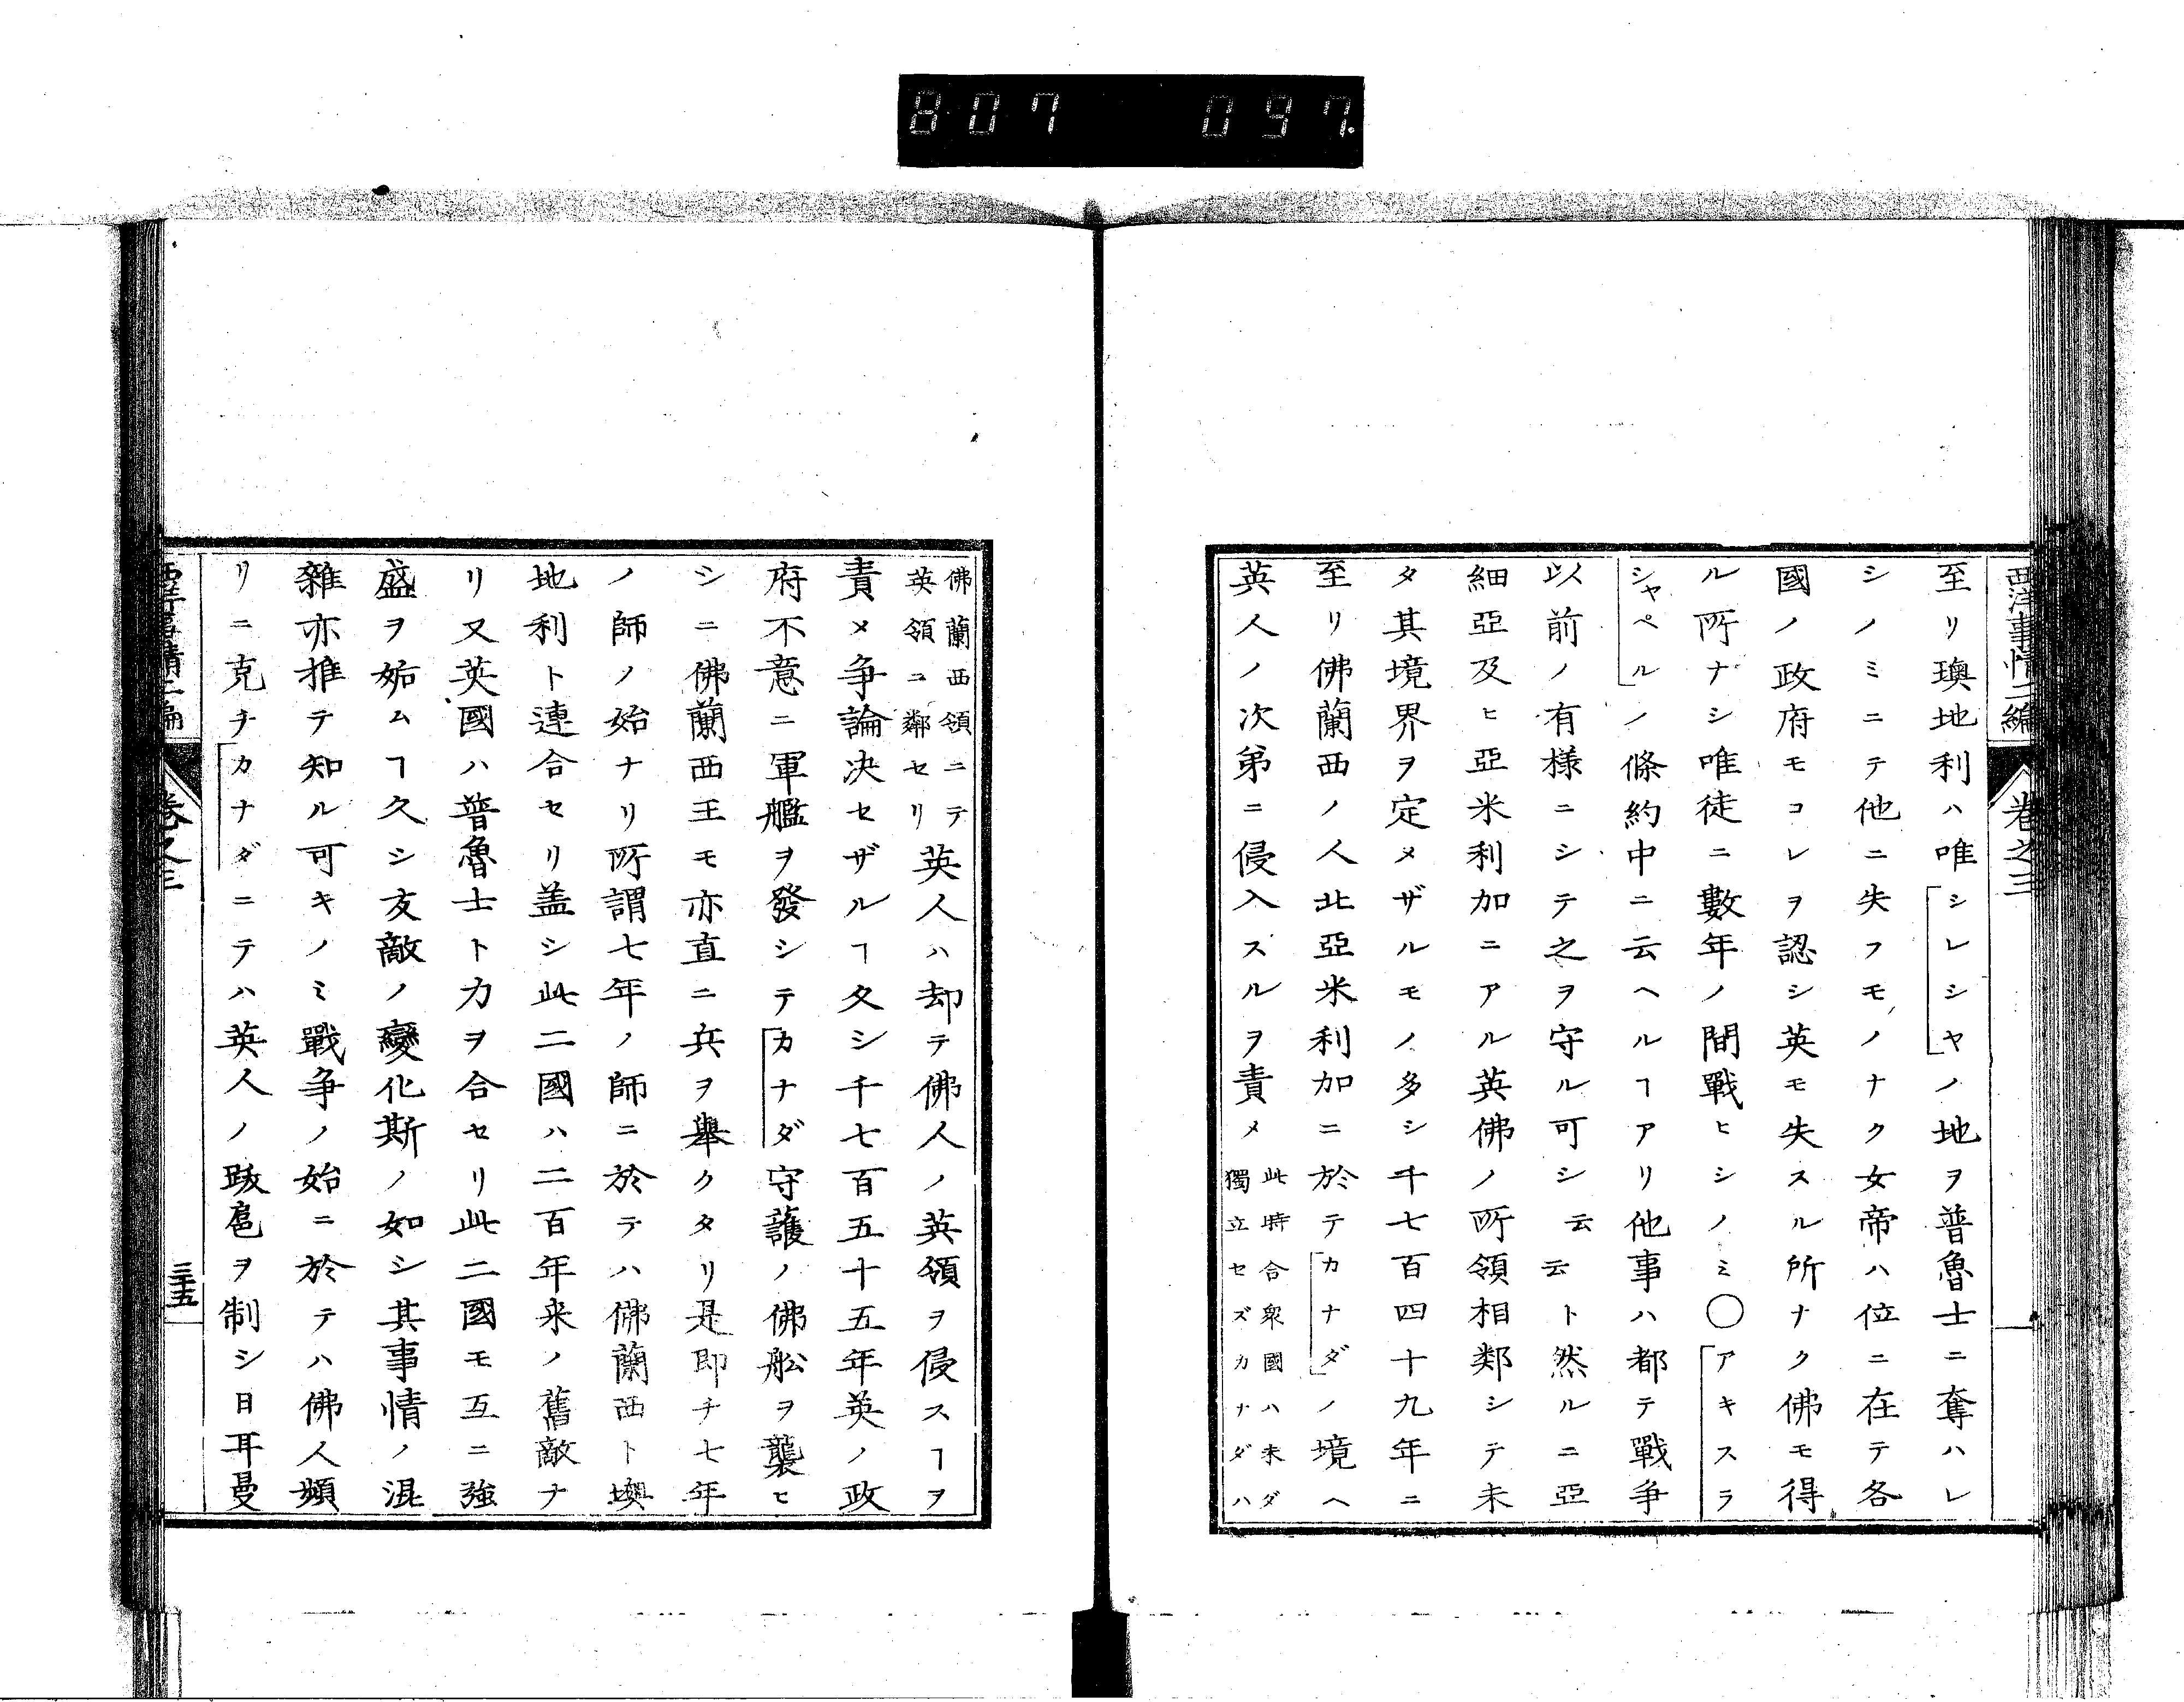 807 097.
西洋事情二編 卷之三
至リ墺地利ハ唯シレシヤノ地ヲ普魯士ニ奪ハレ
シノミニテ他ニ失フモノナク女帝ハ位ニ在テ各
國ノ政府モコレヲ認シ英モ失スル所ナク佛モ得
ル所ナシ唯徒ニ數年ノ間戰ヒシノミ〇アキスラ
シャペルノ條約中ニ云ヘルヿアリ他事ハ都テ戰爭
以前ノ有様ニシテ之ヲ守ル可シ云云ト然ルニ亞
細亞及ヒ亞米利加ニアル英佛ノ所領相鄰シテ未
タ其境界ヲ定メザルモノ多シ千七百四十九年ニ
至リ佛蘭西ノ人北亞米利加ニ於テカナダノ境ヘ
英人ノ次第ニ侵入スルヲ責メ此時合衆國ハ未ダ獨立セズカナダハ
佛蘭西領ニテ英領ニ鄰セリ英人ハ却テ佛人ノ英領ヲ侵スヿヲ
責メ爭論决セザルヿ久シ千七百五十五年英ノ政
府不意ニ軍艦ヲ發シテカナダ守護ノ佛舩ヲ襲ヒ
シニ佛蘭西王モ亦直ニ兵ヲ擧クタリ是即チ七年
ノ師ノ始ナリ所謂七年ノ師ニ於テハ佛蘭西ト墺
地利ト連合セリ盖シ此二國ハ二百年来ノ舊敵ナ
リ又英國ハ普魯士ト力ヲ合セリ此二國モ互ニ強
盛ヲ妬ムヿ久シ友敵ノ變化斯ノ如シ其事情ノ混
雜亦推テ知ル可キノミ戰爭ノ始ニ於テハ佛人頻
リニ克チカナダニテハ英人ノ跋扈ヲ制シ日耳曼
西洋事情二編 卷之三 三十五